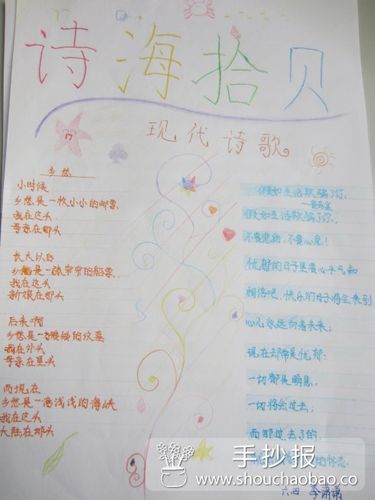 诗海拾贝
现代诗歌
乡愁
小时候
乡愁是一枚小小的邮票
我在这头
母亲在那头
长大以后
乡愁是一张窄窄的船票
我在这头
新娘在那头
后来啊
乡愁是一方矮矮的坟墓
我在外头
母亲在里头
而现在
乡愁是一湾浅浅的海峡
我在这头
大陆在那头
假如生活欺骗了你,
假如生活欺骗了你,
不要悲伤,不要心急!
忧郁的日子里要心平气和
相信吧,快乐的日子将会来到
心儿永远向着未来;
现在却常是忧郁:
一切都是瞬息,
一切将会过去;
而那过去了的,
六四
手抄报
www.shouchaobao.co